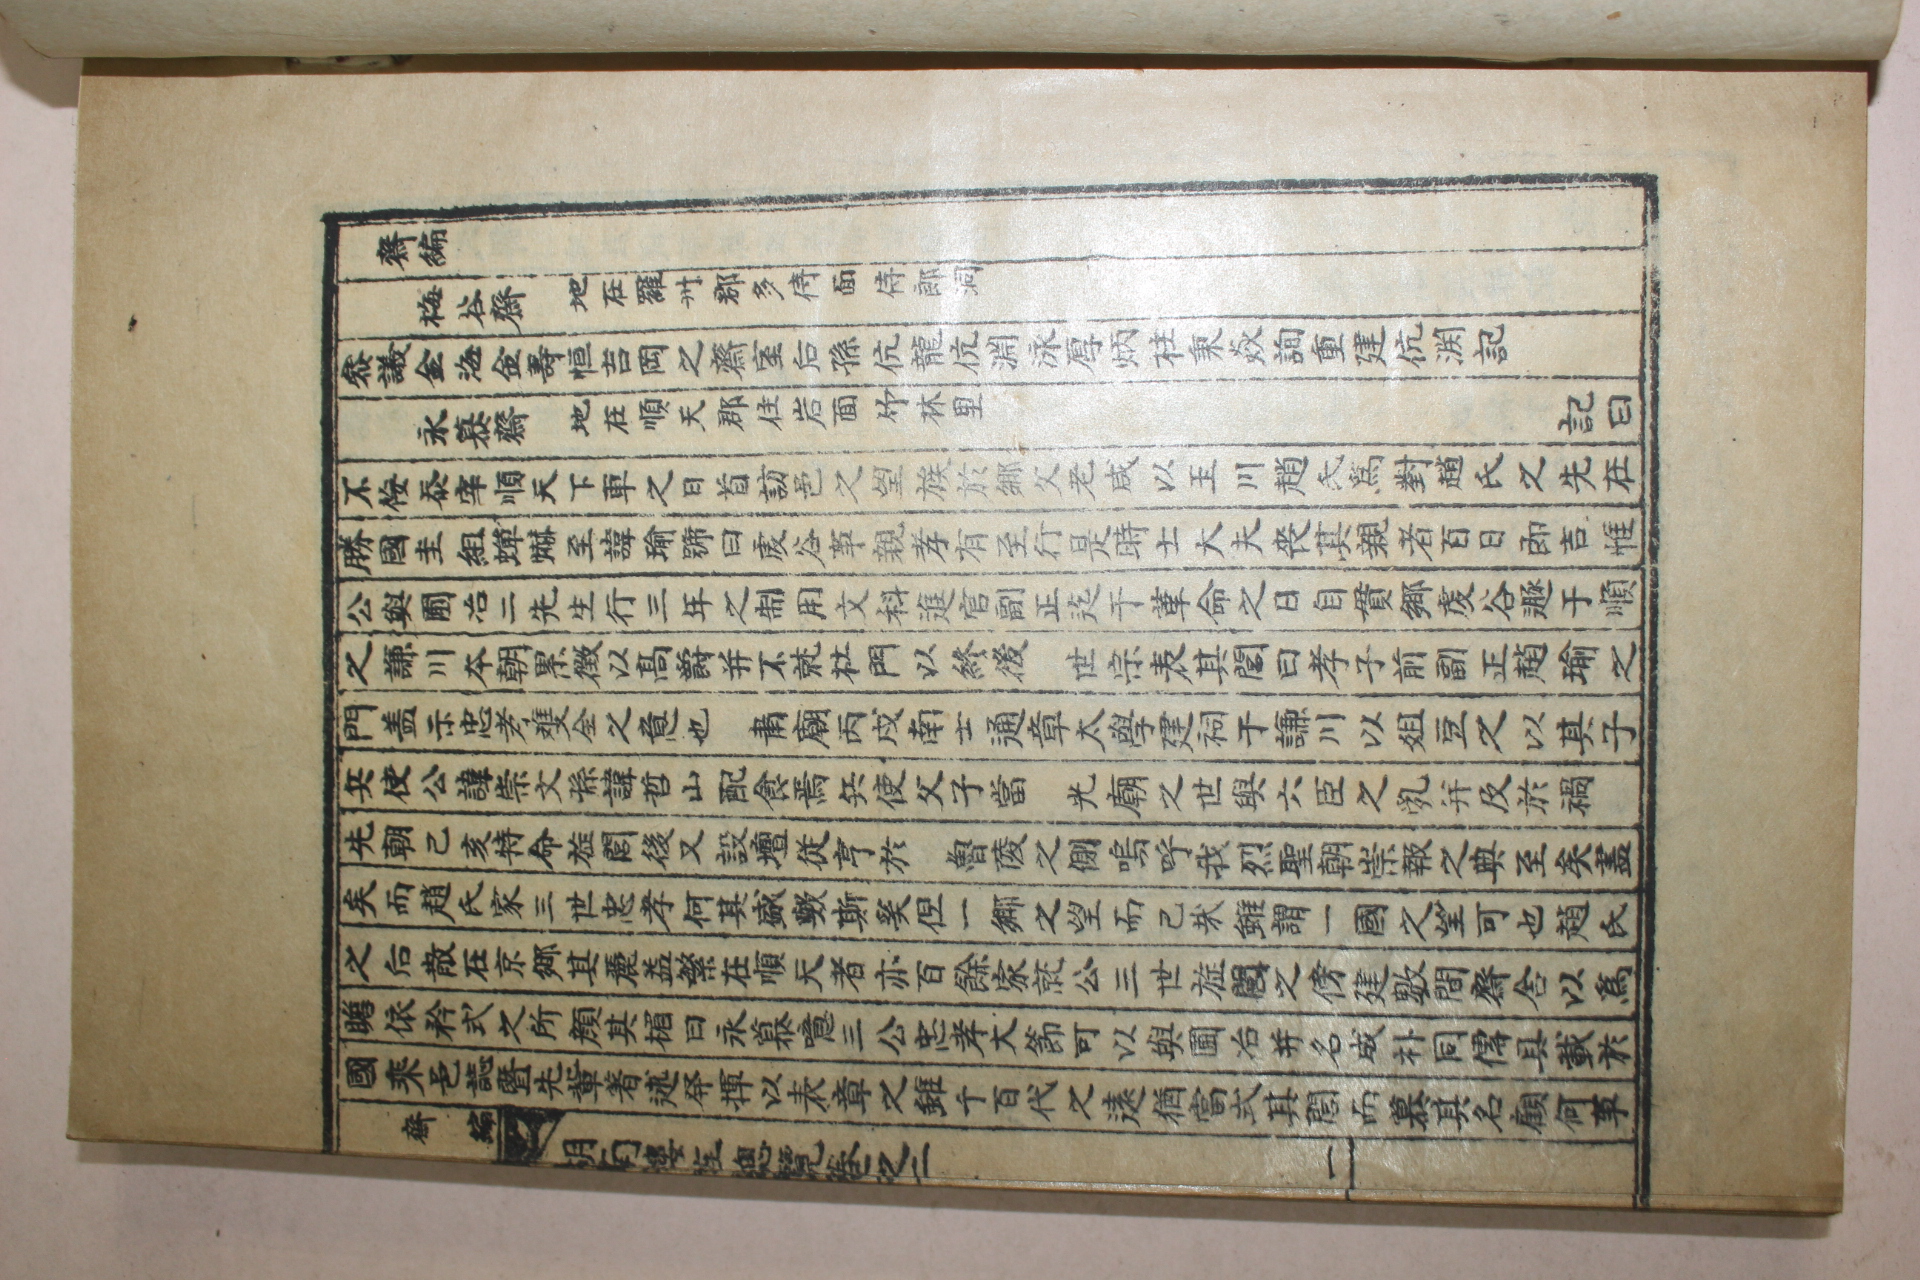 齋編
梅谷齋 地在羅州郡多侍面侍郎洞
參議金海金壽恒吉岡之齋室后孫伉龍伉淵泳厚炳柱秉焱詢重建伉淵記
永慕齋 地在順天郡住岩面竹林里 記曰
不侫忝宰順天下車之日首訪邑之望族於鄉父老咸以玉川趙氏爲對趙氏之先在
勝國圭組蟬嫣至諱瑜號曰虔谷事親孝有至行是時士大夫喪其親者百日卽吉惟
公與圃冶二先生行三年之制用文科進官副正迄于革命之日自貫鄉虔谷遯于順
之謙川本朝累徵以高爵并不就杜門以終後 世宗表其閭曰孝子前副正趙瑜之
門盖示忠孝雙全之意也 肅廟丙戌南士通章太學建祠于謙川以俎豆之以其子
兵使公諱崇文孫諱哲山配食焉兵使父子當 光廟之世與六臣之亂并及於禍
先朝己亥特命旌閭後又設壇從享於 魯陵之側嗚呼我烈聖朝崇報之典至矣盡
矣而趙氏家三世忠孝何其盛歟斯奚但一鄉之望而已哉雖謂一國之望可也趙氏
之后散在京鄉其麗益繁在順天者亦百餘家就公三世旌閭之傍建數間齋舍以爲
瞻依矜式之所顔其楣曰永慕噫三公忠孝大節可以與圃冶并名咸朴同儔具載於
國乘邑誌曁先輩著述發揮以表章之雖于百代之遠猶當式其閭而慕其名顧何事
齋編 湖南樓旌總覽卷之二 一